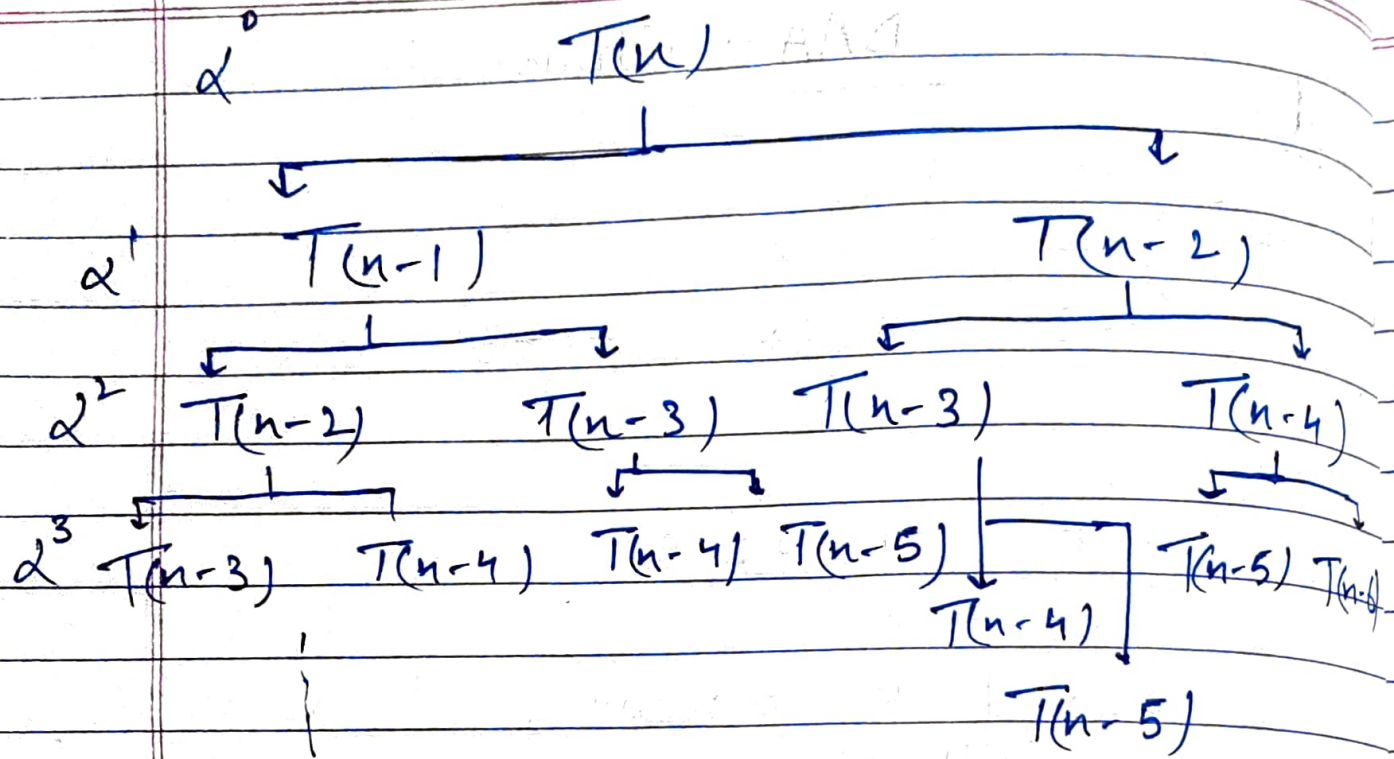 α⁰ T(n)
α¹ T(n-1) T(n-2)
α² T(n-2) T(n-3) T(n-3) T(n-4)
α³ T(n-3) T(n-4) T(n-4) T(n-5) T(n-5) T(n-6)
T(n-4)
T(n-5)